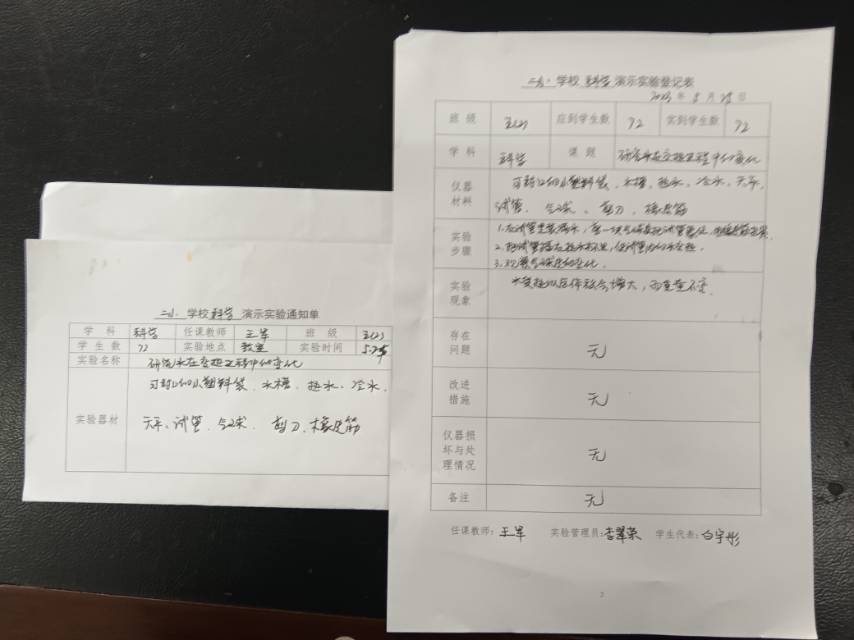 二小 学校 科学 演示实验通知单
学 科 科学 任课教师 王军 班 级 五(2)
学 生 数 72 实验地点 教室 实验时间
实验名称 研究水在变热过程中的变化
实验器材 可封口的小塑料袋、水槽、热水、冷水、
天平、试管、气球、剪刀、橡皮筋
二小 学校 科学 演示实验登记表
年 5 月 25 日
班 级 五(2) 应到学生数 72 实到学生数 72
学 科 科学 课 题 研究水在变热过程中的变化
仪器 可封口的小塑料袋、水槽、热水、冷水、天平、
材料 试管、气球、剪刀、橡皮筋
实验 1.在试管里装满水,
步骤 2.把试管放在热水杯里,使试管内的水变热。
3.观察气球皮的变化。
实验 水受热以后体积会增大,而重量不变。
现象
存在
问题 无
改进
措施 无
仪器损
坏与处 无
理情况
备注 无
任课教师:王军 实验管理员:李翠荣 学生代表:白宇彤